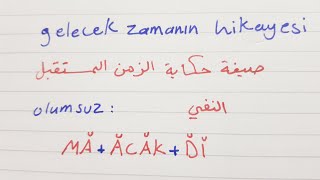 gelecek zamanın hikayesi
صيغة حكاية الزمن المستقبل
olumsuz : النفي
MĂ + ĂCĂK + D̆İ